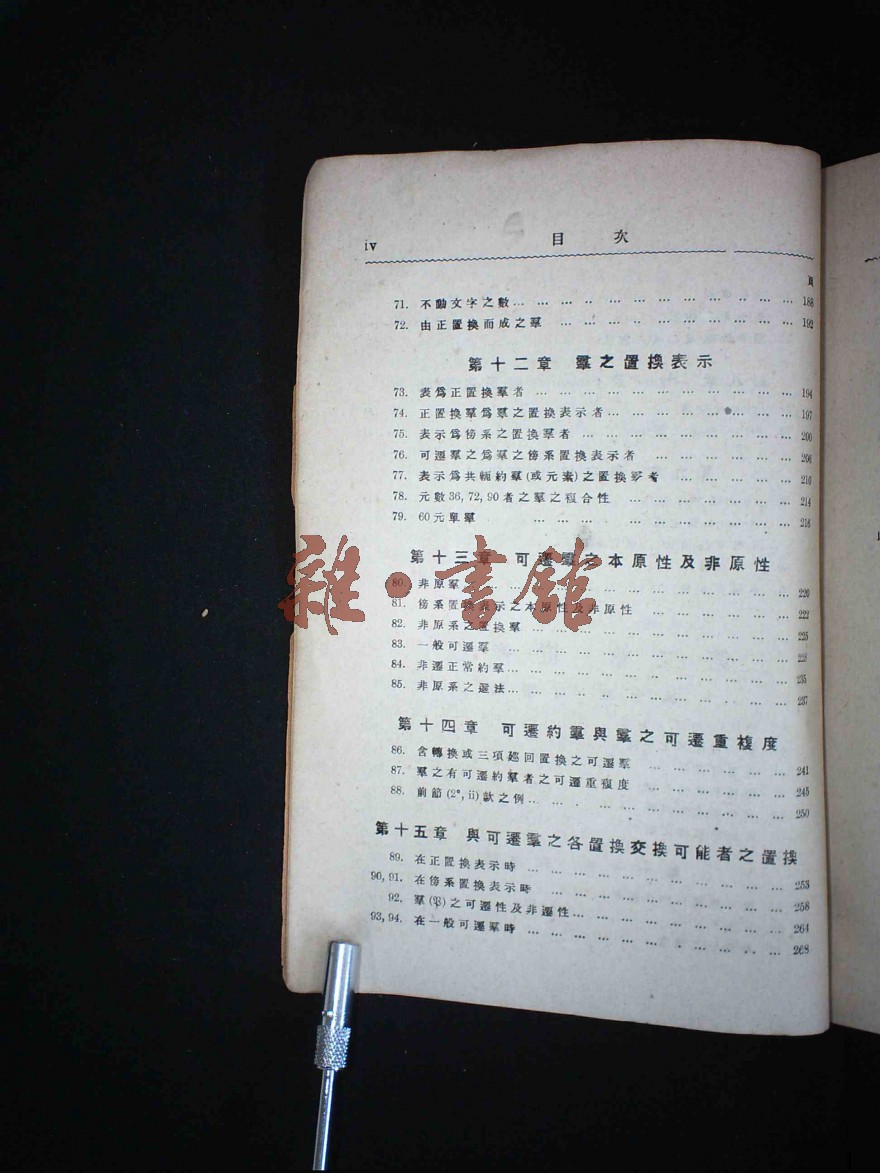 iv 目 次
頁
71. 不動文字之數… … … … … … … … … … … … … 188
72. 由正置換而成之羣 … … … … … … … … … … … 192
第十二章 羣之置換表示
73. 表爲正置換羣者 … … … … … … … … … … … … 194
74. 正置換羣爲羣之置換表示者… … … … … … … … … 197
75. 表示爲傍系之置換羣者 … … … … … … … … … … 200
76. 可遷羣之爲羣之傍系置換表示者 … … … … … … … … 206
77. 表示爲共軛約羣(或元素)之置換羣者 … … … … … … … 210
78. 元數36, 72, 90者之羣之複合性 … … … … … … … 214
79. 60元單羣 … … … … … … … … … … … 218
第十三章 可遷羣之本原性及非原性
80. 非原羣 … … … … … … … … … … … … 220
81. 傍系置換表示之本原性及非原性 … … … … … … … 222
82. 非原系之置換羣 … … … … … … … … … … … 225
83. 一般可遷羣 … … … … … … … … … … … …
84. 非遷正常約羣… … … … … … … … … … … … 235
85. 非原系之選法… … … … … … … … … … … … 237
第十四章 可遷約羣與羣之可遷重複度
86. 含轉換或三項廻回置換之可遷羣 … … … … … … … 241
87. 羣之有可遷約羣者之可遷重複度 … … … … … … … 245
88. 前節(2°, ii)款之例… … … … … … … … … … 250
第十五章 與可遷羣之各置換交換可能者之置換
89. 在正置換表示時 … … … … … … … … … … … 253
90, 91. 在傍系置換表示時 … … … … … … … … … … 258
92. 羣(𝔓)之可遷性及非遷性… … … … … … … … … 264
93, 94. 在一般可遷羣時 … … … … … … … … … … … 268
雜·書館